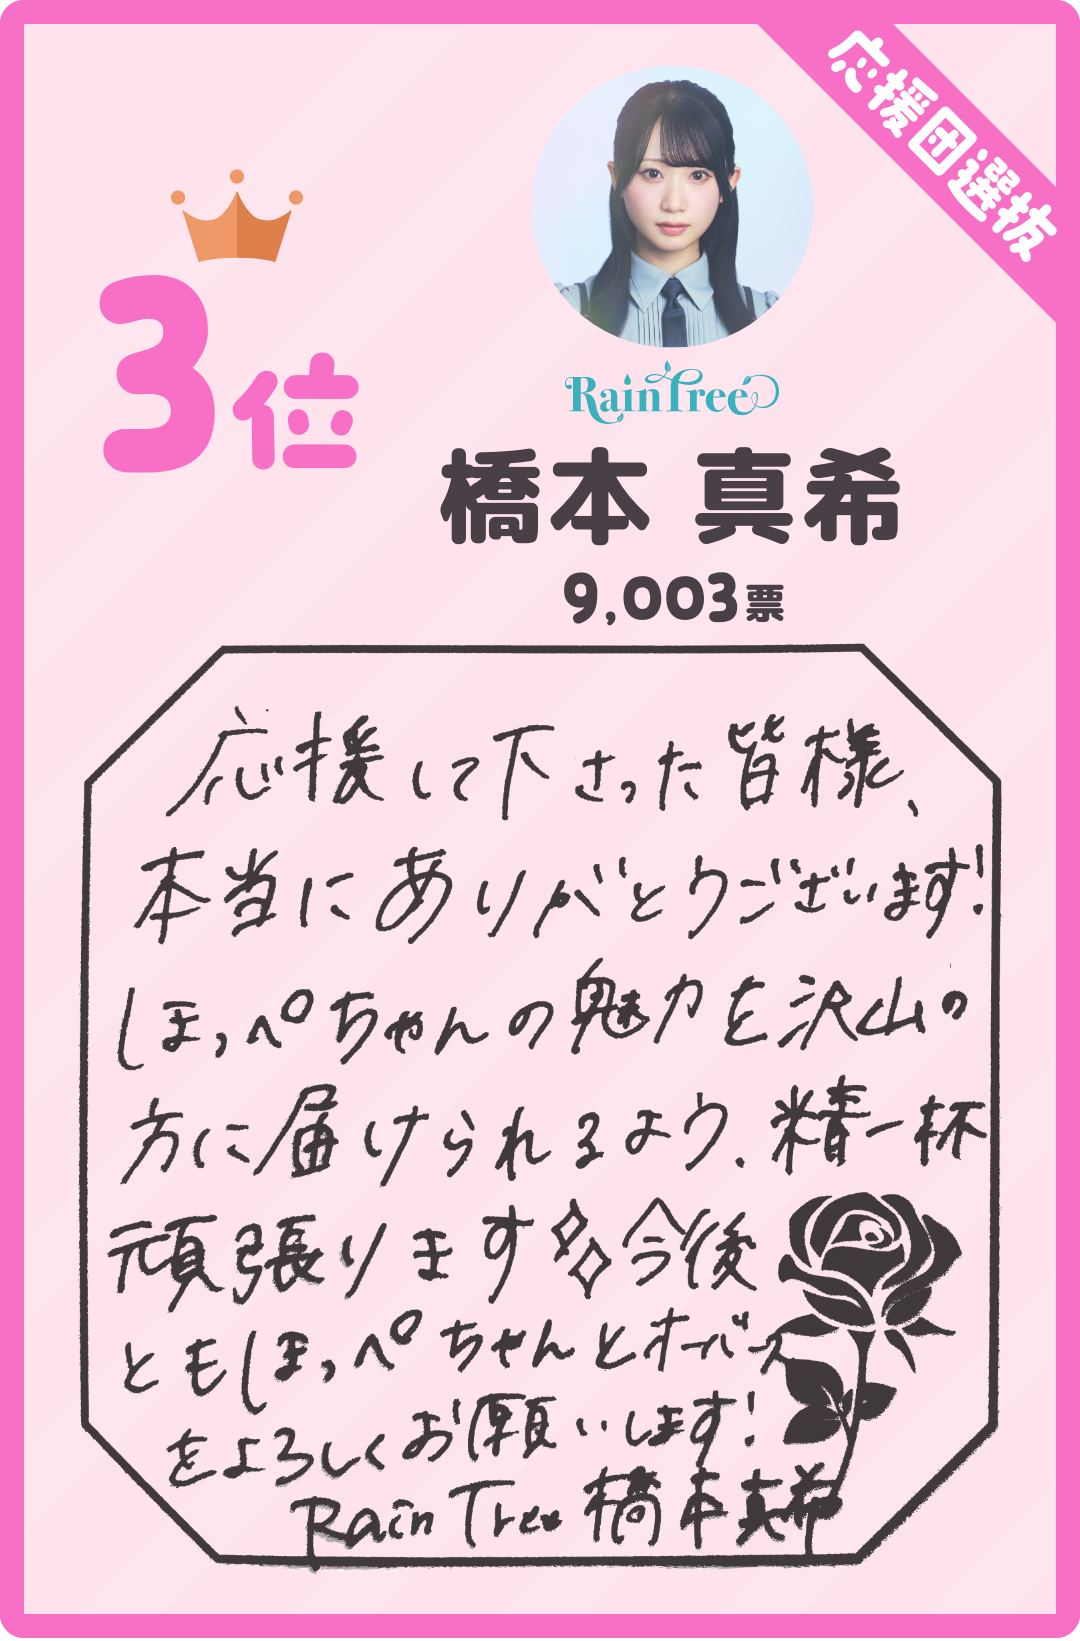 応援団選抜
3位
Rain Tree
橋本 真希
9,003票
応援して下さった皆様、
本当にありがとうございます!
ほっぺちゃんの魅力を沢山の
方に届けられるよう、精一杯
頑張ります今後
ともほっぺちゃんとオーバース
をよろしくお願いします!
Rain Tree 橋本真希